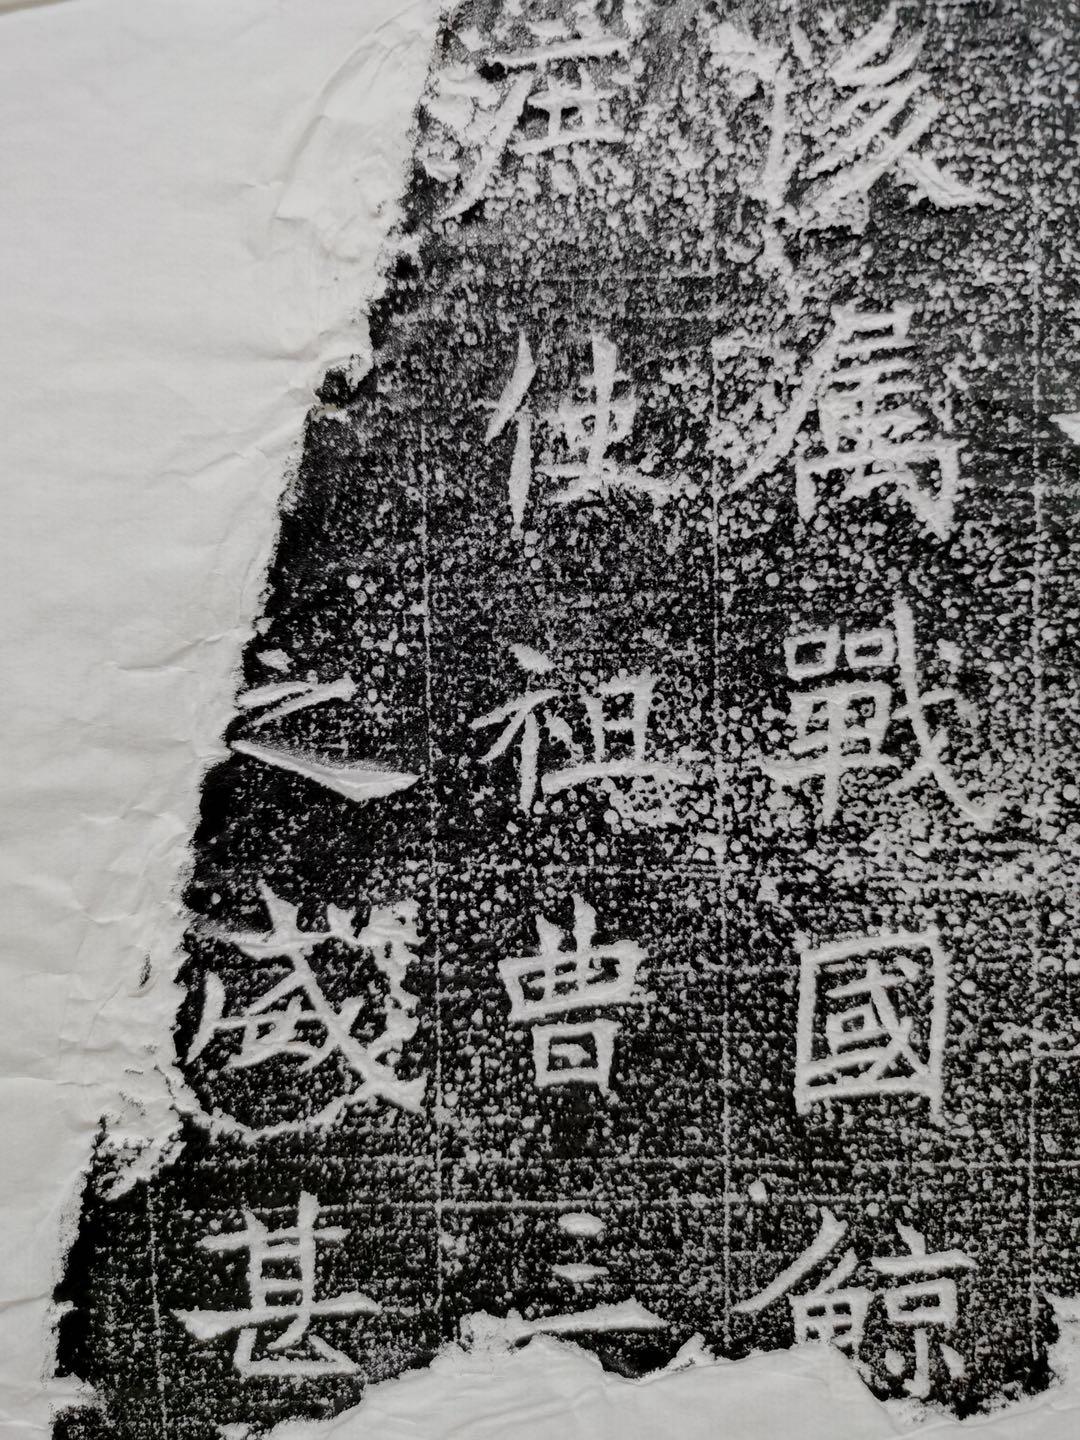 後屬戰國鯨
使祖曹三
之甚